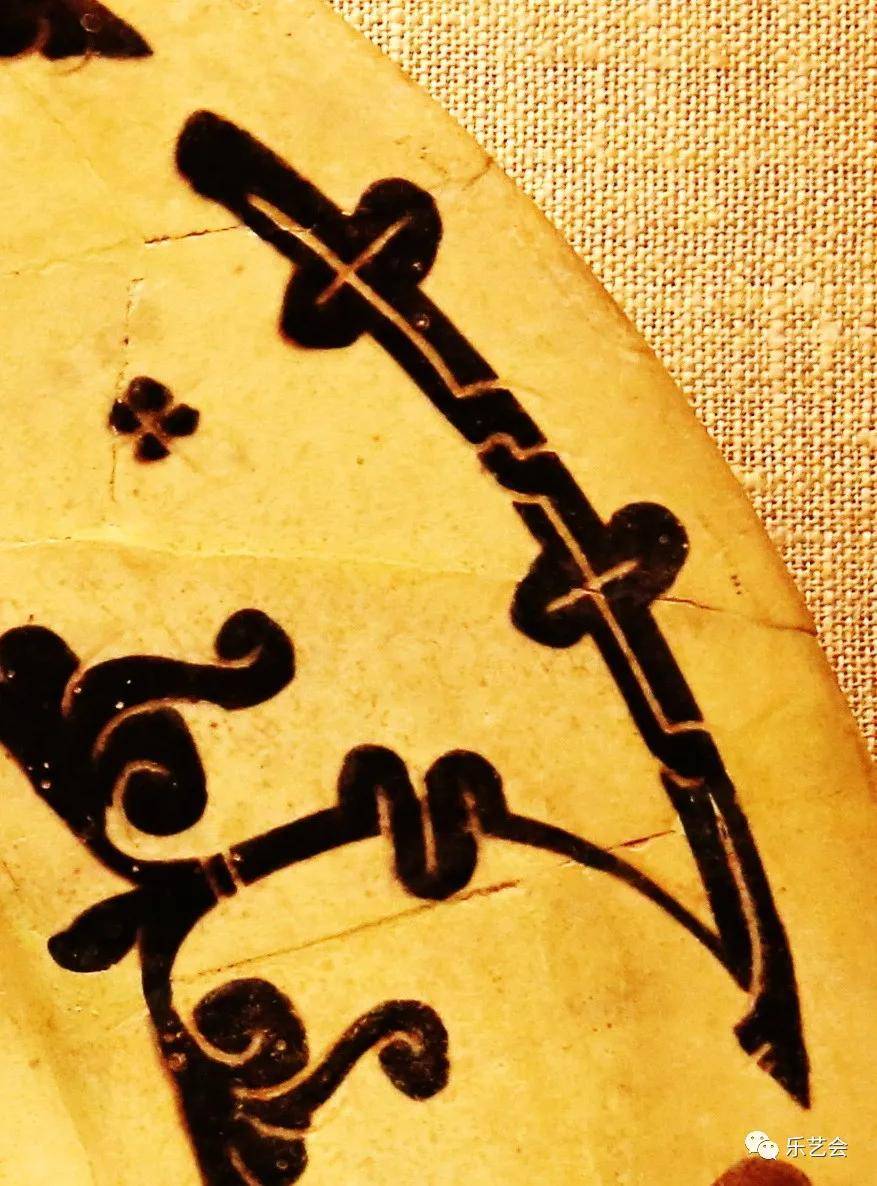 乐艺会